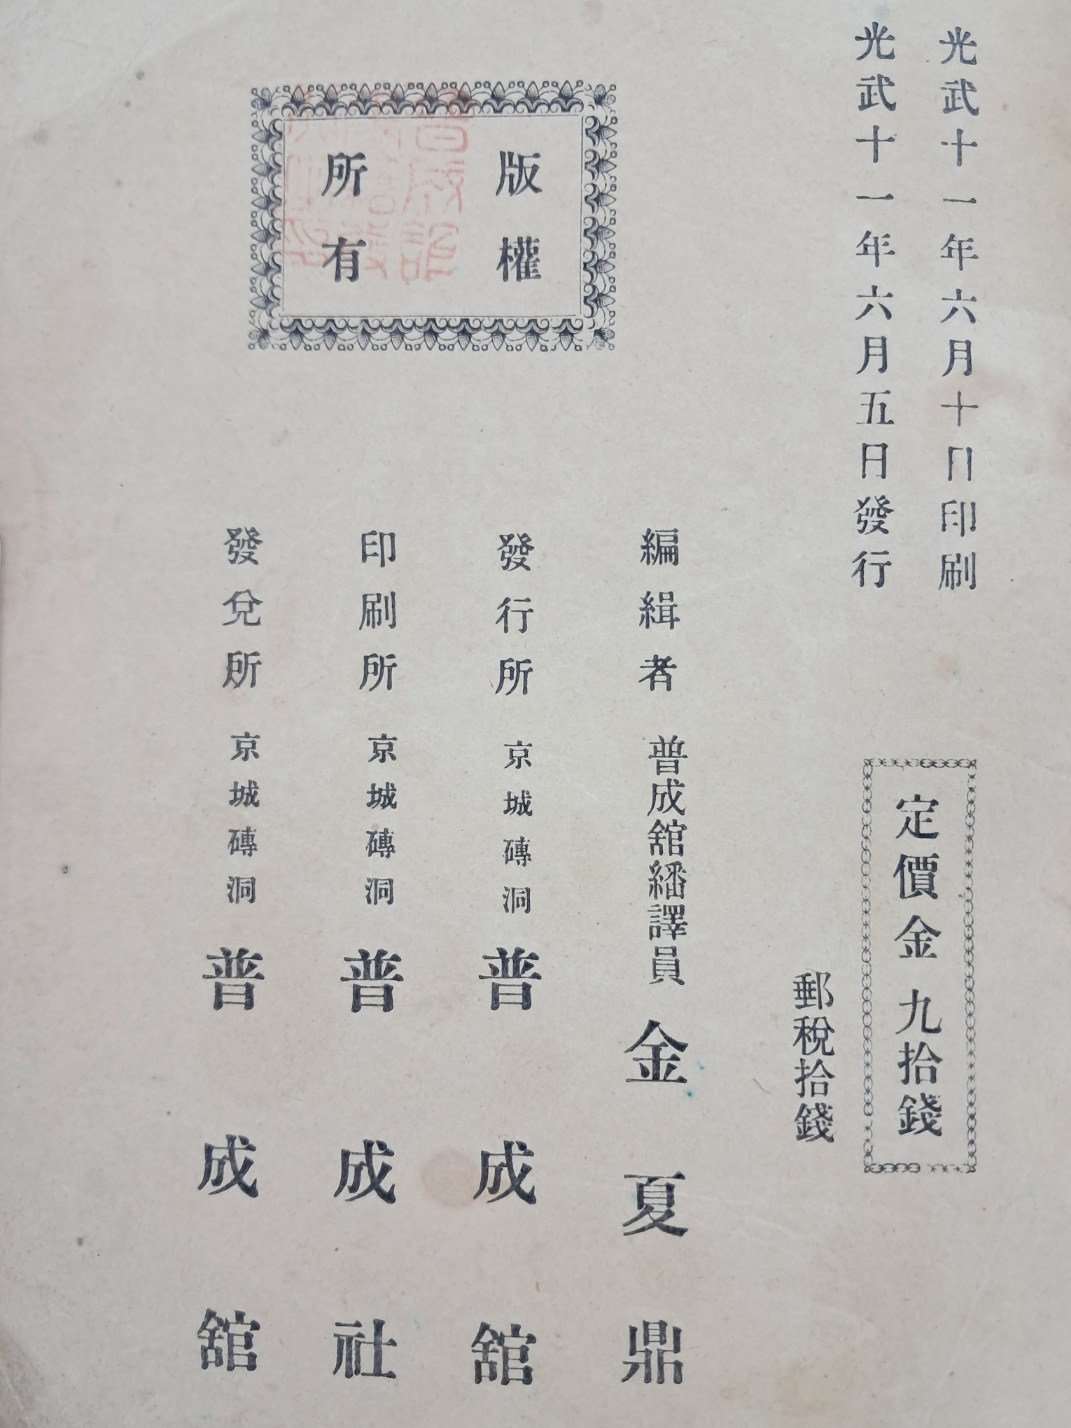 光武十一年六月十日印刷
光武十一年六月五日發行
定價金九拾錢
郵稅拾錢
版權
所有
編緝者 普成舘繙譯員 金夏鼎
發行所 京城磚洞 普成舘
印刷所 京城磚洞 普成社
發兌所 京城磚洞 普成舘